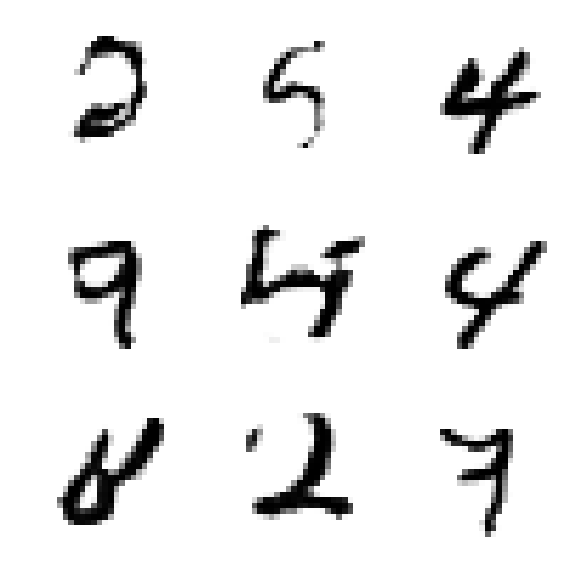 2 5 4
9 4
8 2 7